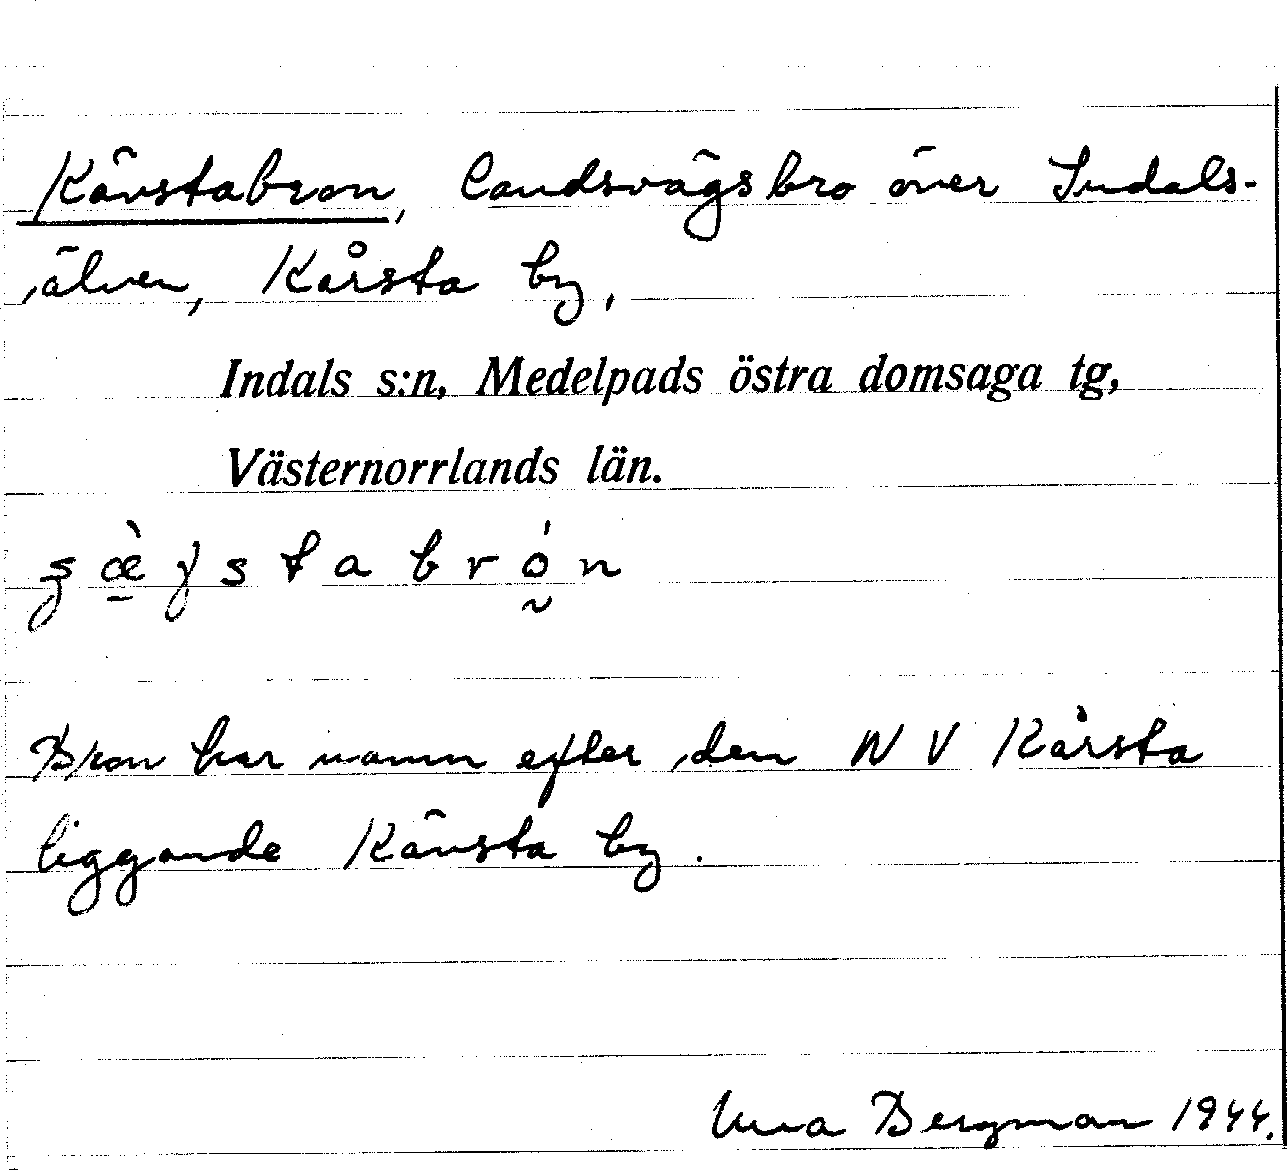 Kävstabron, landsvägsbro över Indals-
älven, Kårsta by,
Indals s:n, Medelpads östra domsaga tg,
Västernorrlands län.
Bron har namn efter den NV Kårsta
liggande Kävsta by.
Bergman 1944.